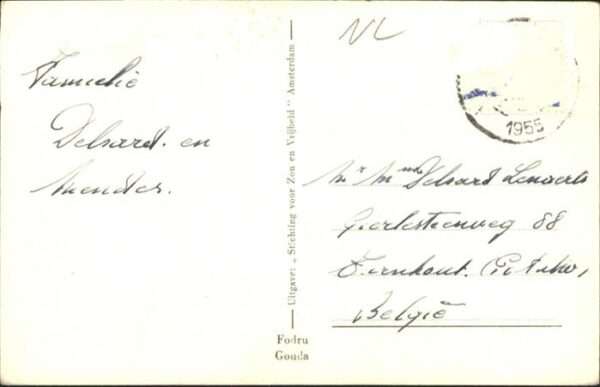 NL
Familie
Delsard. en
Mender.
Uitgave: „Stichting voor Zon en Vrijheid" Amsterdam
Fodru
Gouda
1955
Mr Mme Delsard Lenaerts
88
Turnhout.
België